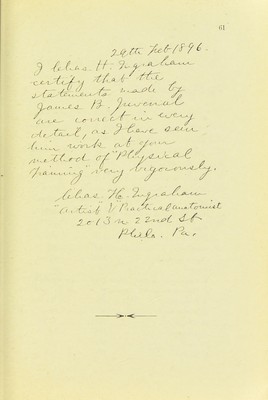 61
29th Feb 1896.
I Chas H. Ingraham
certify that the
statements made by
James B. Juvenal
are correct in every
detail, as I have seen
him work at your
method of "Physical
Training very vigorously.
Chas H. Ingraham
"Artist & Practical anatomist
2013 n 22nd St
Phila. Pa.